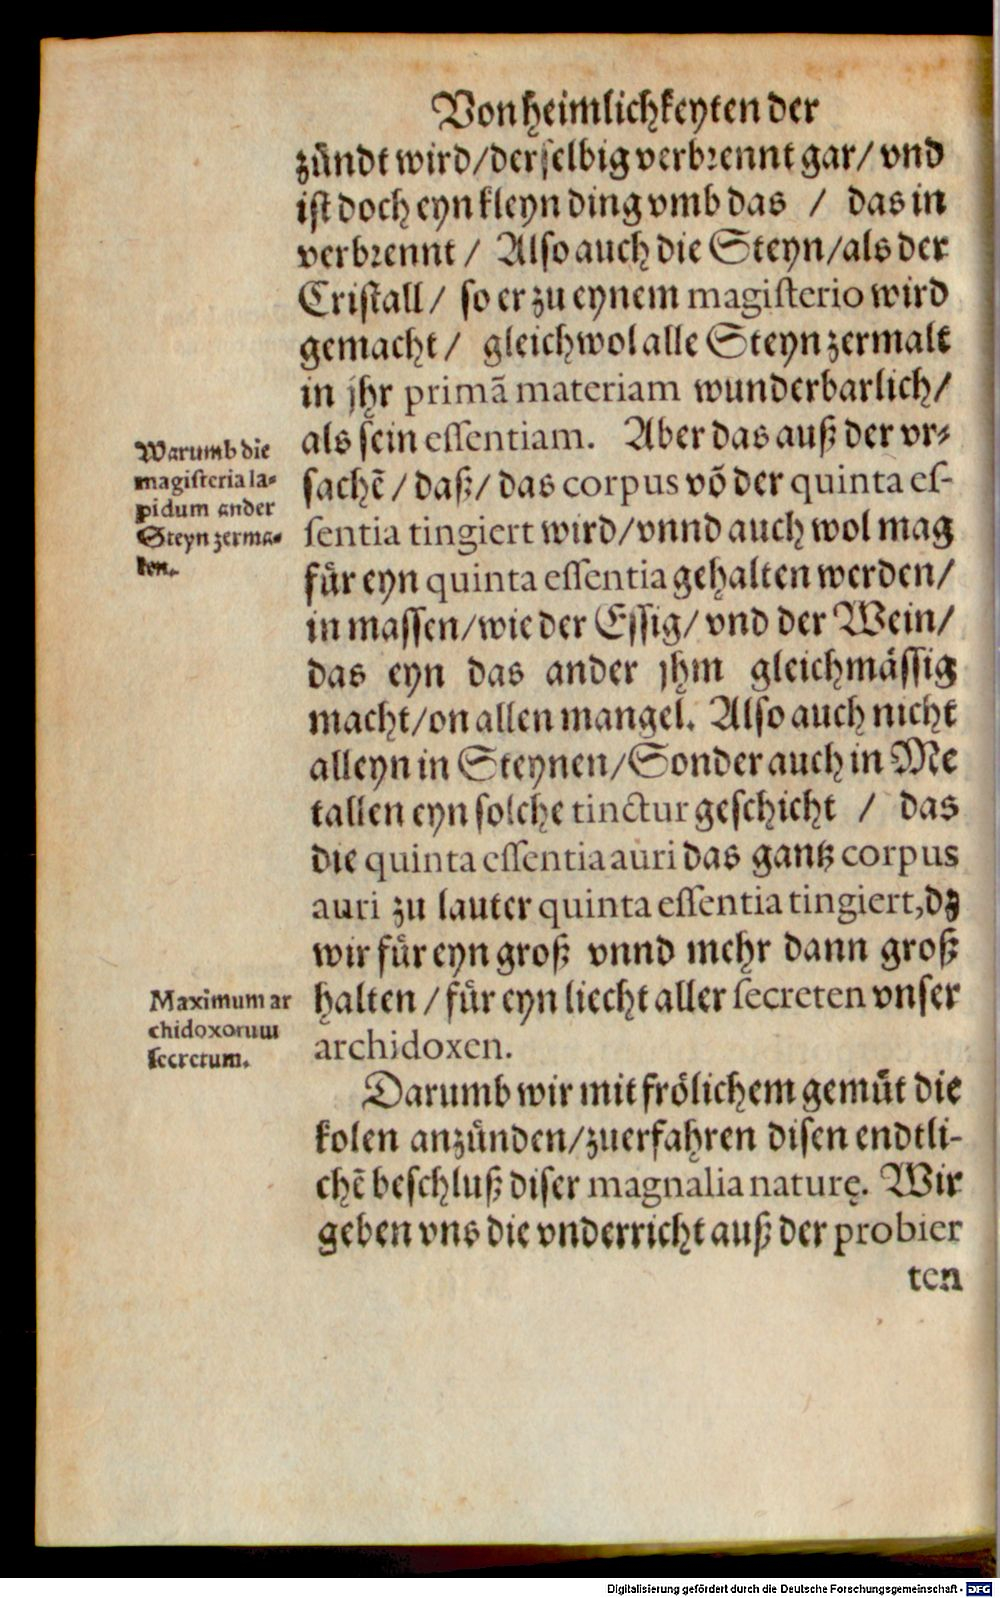 Von heimlichkeyten der
zündt wird/derselbig verbrennt gar/ vnd
ist doch eyn kleyn ding vmb das / das in
verbrennt / Also auch die Steyn/als der
Cristall/ so er zu eynem magisterio wird
gemacht/ gleichwol alle Steyn zermalt
in jhr primã materiam wunderbarlich/
als sein essentiam. Aber das auß der vr-
sachẽ/daß/das corpus võ der quinta es-
sentia tingiert wird/vnnd auch wol mag
für eyn quinta essentia gehalten werden/
in massen/wie der Essig/ vnd der Wein/
das eyn das ander jhm gleichmässig
macht/on allen mangel. Also auch nicht
alleyn in Steynen/Sonder auch in Me
tallen eyn solche tinctur geschicht / das
die quinta essentia auri das gantz corpus
auri zu lauter quinta essentia tingiert,dz
wir für eyn groß vnnd mehr dann groß
halten /für eyn liecht aller secreten vnser
archidoxen.
Darumb wir mit frölichem gemüt die
kolen anzünden/zuerfahren disen endtli-
chẽ beschluß diser magnalia naturę. Wir
geben vns die vnderricht auß der probier
ten
Warumb die
magisteria la-
pidum ander
Steyn zerma-
len.
Maximum ar
chidoxorum
secretum.
Digitalisierung gefördert durch die Deutsche Forschungsgemeinschaft - DFG